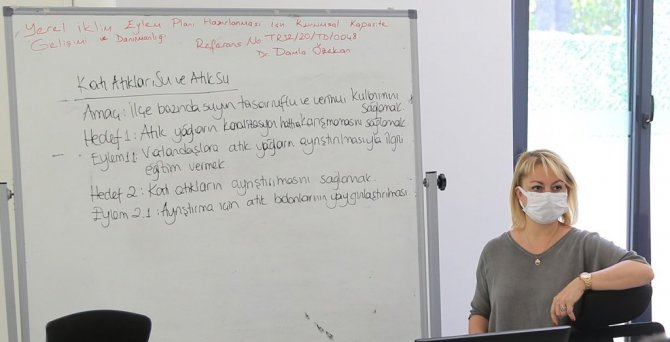 Yerel iklim Eylem Planı Hazırlanması İçin Kurumsal Kapasite
Gelişimi ve Danışmanlığı Referans No: TR32/20/TD/0048
Dr. Damla Özekan
Katı Atıklar, Su ve Atıksu
Amaç: İlçe bazında suyun tasarruflu ve verimli kullanımını sağlamak.
Hedef 1: Atık yağların kanalizasyon hattına karışmamasını sağlamak
Eylem 1.1: Vatandaşlara atık yağların ayrıştırılmasıyla ilgili
eğitim vermek
Hedef 2: Katı atıkların ayrıştırılmasını sağlamak.
Eylem 2.1: Ayrıştırma için atık bidonlarının yaygınlaştırılması